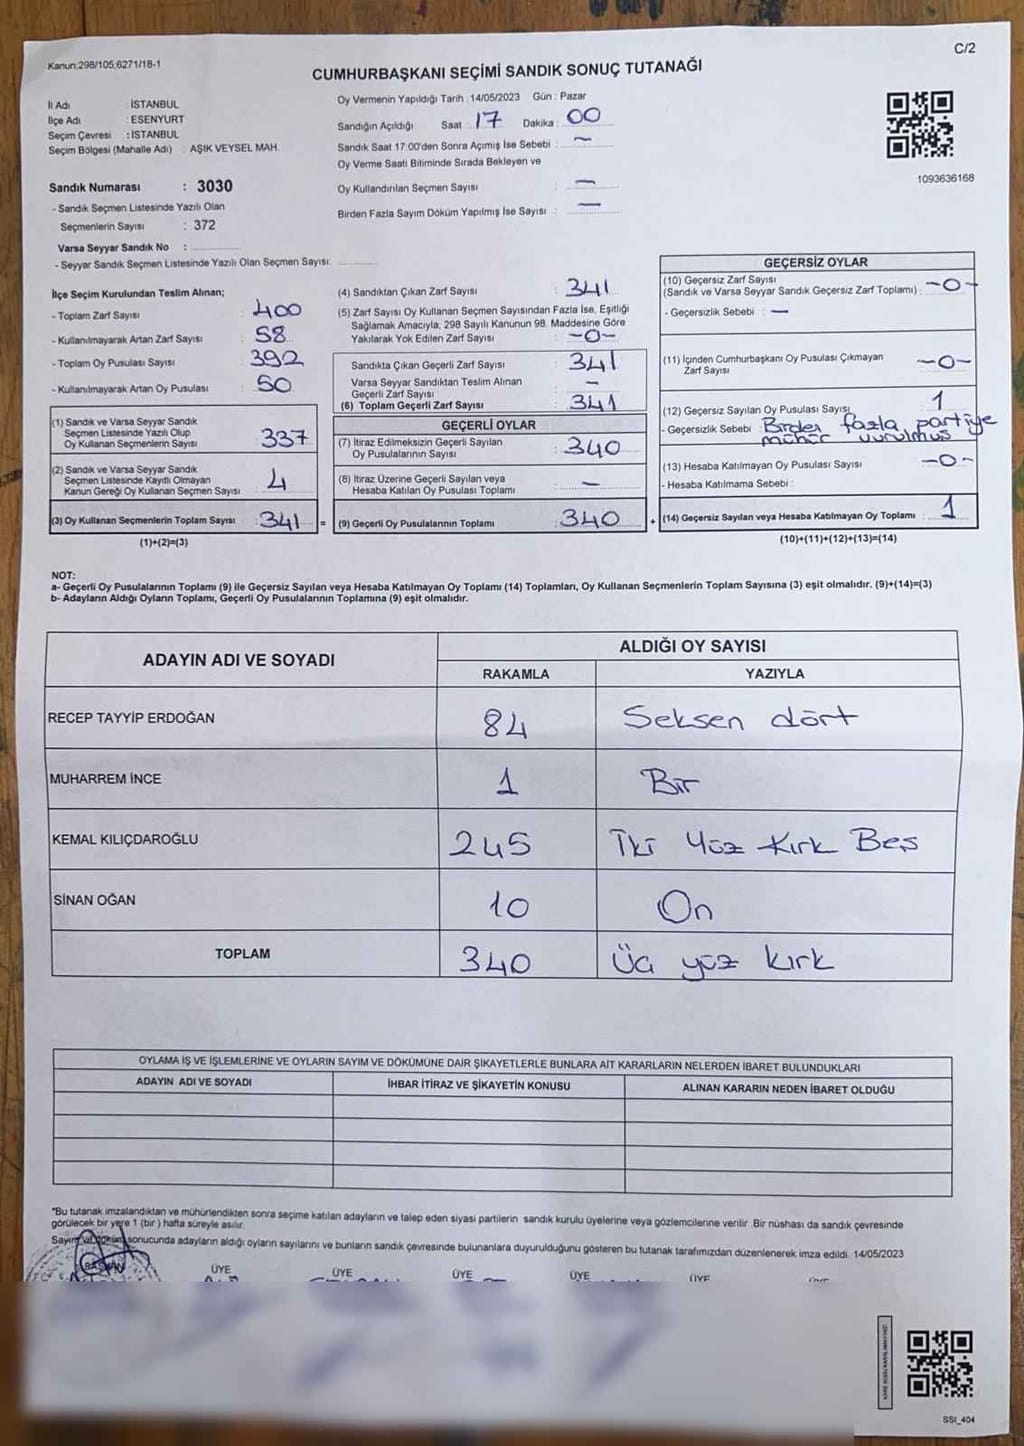 C/2
Kanun,298/105,6271/18-1
CUMHURBAŞKANI SEÇİMİ SANDIK SONUÇ TUTANAĞI
İl Adı : İSTANBUL
İlçe Adı : ESENYURT
Seçim Çevresi : İSTANBUL
Seçim Bölgesi (Mahalle Adı) : AŞIK VEYSEL MAH.
Sandık Numarası : 3030
- Sandık Seçmen Listesinde Yazılı Olan
Seçmenlerin Sayısı : 372
Varsa Seyyar Sandık No :
- Seyyar Sandık Seçmen Listesinde Yazılı Olan Seçmen Sayısı:
Oy Vermenin Yapıldığı Tarih : 14/05/2023 Gün : Pazar
Sandığın Açıldığı Saat : 17 Dakika : 00
Sandık Saat 17:00'den Sonra Açımış İse Sebebi : —
Oy Verme Saati Bitiminde Sırada Bekleyen ve
Oy Kullandırılan Seçmen Sayısı : —
Birden Fazla Sayım Döküm Yapılmış İse Sayısı : —
1093636168
İlçe Seçim Kurulundan Teslim Alınan;
- Toplam Zarf Sayısı : 400
- Kullanılmayarak Artan Zarf Sayısı : 58
- Toplam Oy Pusulası Sayısı : 392
- Kullanılmayarak Artan Oy Pusulası : 50
(1) Sandık ve Varsa Seyyar Sandık
Seçmen Listesinde Yazılı Olup
Oy Kullanan Seçmenlerin Sayısı : 337
(2) Sandık ve Varsa Seyyar Sandık
Seçmen Listesinde Kayıtlı Olmayan
Kanun Gereği Oy Kullanan Seçmen Sayısı : 4
(3) Oy Kullanan Seçmenlerin Toplam Sayısı : 341 =
(1)+(2)=(3)
(4) Sandıktan Çıkan Zarf Sayısı : 341
(5) Zarf Sayısı Oy Kullanan Seçmen Sayısından Fazla İse, Eşitliği
Sağlamak Amacıyla, 298 Sayılı Kanunun 98. Maddesine Göre
Yakılarak Yok Edilen Zarf Sayısı : -0-
Sandıkta Çıkan Geçerli Zarf Sayısı : 341
Varsa Seyyar Sandıktan Teslim Alınan
Geçerli Zarf Sayısı : —
(6) Toplam Geçerli Zarf Sayısı : 341
GEÇERLİ OYLAR
(7) İtiraz Edilmeksizin Geçerli Sayılan
Oy Pusulalarının Sayısı : 340
(8) İtiraz Üzerine Geçerli Sayılan veya
Hesaba Katılan Oy Pusulası Toplamı : —
(9) Geçerli Oy Pusulalarının Toplamı : 340 +
GEÇERSİZ OYLAR
(10) Geçersiz Zarf Sayısı
(Sandık ve Varsa Seyyar Sandık Geçersiz Zarf Toplamı) : -0-
- Geçersizlik Sebebi : —
(11) İçinden Cumhurbaşkanı Oy Pusulası Çıkmayan
Zarf Sayısı : -0-
(12) Geçersiz Sayılan Oy Pusulası Sayısı : 1
- Geçersizlik Sebebi : Birden fazla partiye
mühür vurulmuş
(13) Hesaba Katılmayan Oy Pusulası Sayısı : -0-
- Hesaba Katılmama Sebebi :
(14) Geçersiz Sayılan veya Hesaba Katılmayan Oy Toplamı : 1
(10)+(11)+(12)+(13)=(14)
NOT:
a- Geçerli Oy Pusulalarının Toplamı (9) ile Geçersiz Sayılan veya Hesaba Katılmayan Oy Toplamı (14) Toplamları, Oy Kullanan Seçmenlerin Toplam Sayısına (3) eşit olmalıdır. (9)+(14)=(3)
b- Adayların Aldığı Oyların Toplamı, Geçerli Oy Pusulalarının Toplamına (9) eşit olmalıdır.
ADAYIN ADI VE SOYADI
ALDIĞI OY SAYISI
RAKAMLA YAZIYLA
RECEP TAYYİP ERDOĞAN 84 Seksen dört
MUHARREM İNCE 1 Bir
KEMAL KILIÇDAROĞLU 245 İki Yüz Kırk Beş
SİNAN OĞAN 10 On
TOPLAM 340 Üç yüz kırk
OYLAMA İŞ VE İŞLEMLERİNE VE OYLARIN SAYIM VE DÖKÜMÜNE DAİR ŞİKAYETLERLE BUNLARA AİT KARARLARIN NELERDEN İBARET BULUNDUKLARI
ADAYIN ADI VE SOYADI İHBAR İTİRAZ VE ŞİKAYETİN KONUSU ALINAN KARARIN NEDEN İBARET OLDUĞU
*Bu tutanak imzalandıktan ve mühürlendikten sonra seçime katılan adayların ve talep eden siyasi partilerin sandık kurulu üyelerine veya gözlemcilerine verilir. Bir nüshası da sandık çevresinde
görülecek bir yere 1 (bir) hafta süreyle asılır.
Sayım ve döküm sonucunda adayların aldığı oyların sayılarını ve bunların sandık çevresinde bulunanlara duyurulduğunu gösteren bu tutanak tarafımızdan düzenlenerek imza edildi. 14/05/2023
BAŞKAN ÜYE ÜYE ÜYE ÜYE ÜYE
SSI_404